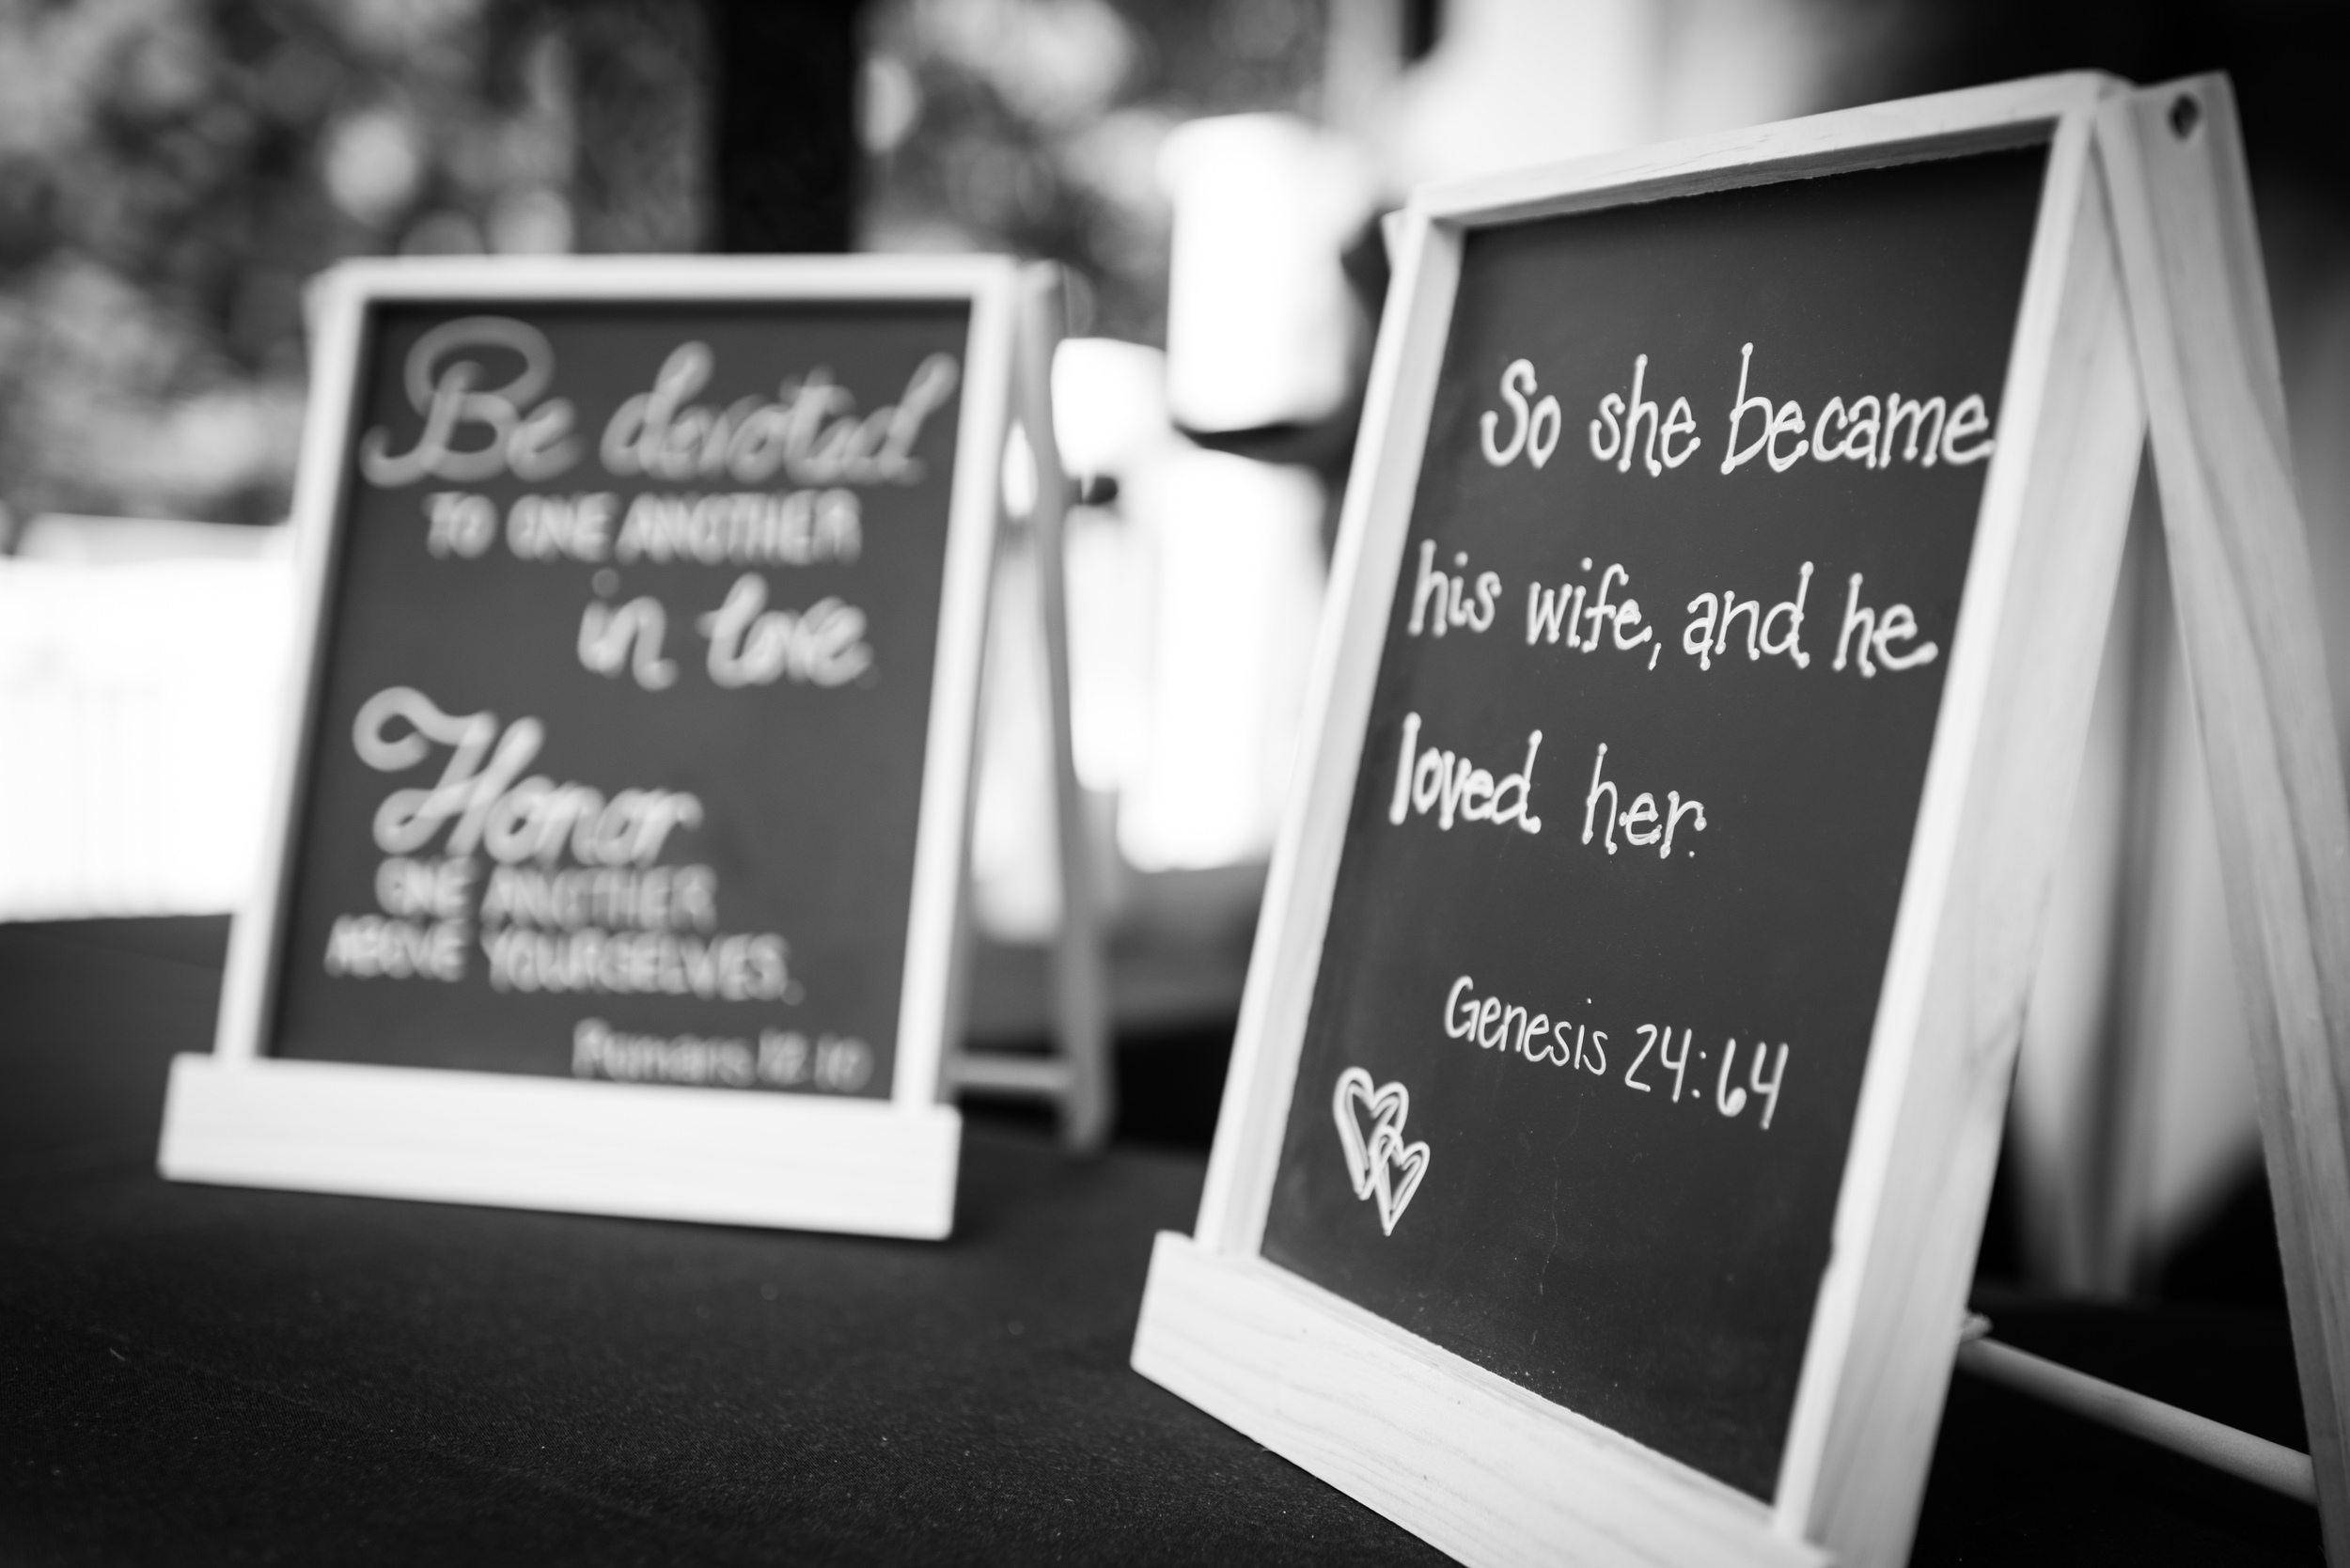 Be devoted
TO ONE ANOTHER
in love
Honor
ONE ANOTHER
ABOVE YOURSELVES.
Romans 12:10
So she became
his wife, and he
loved her.
Genesis 24:64